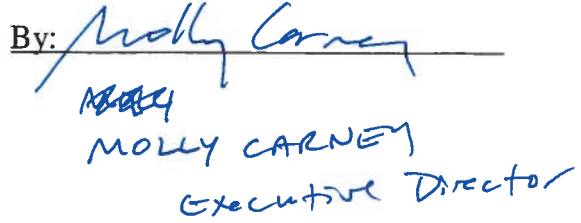 By: Molly Carney
MOLLY CARNEY
Executive Director